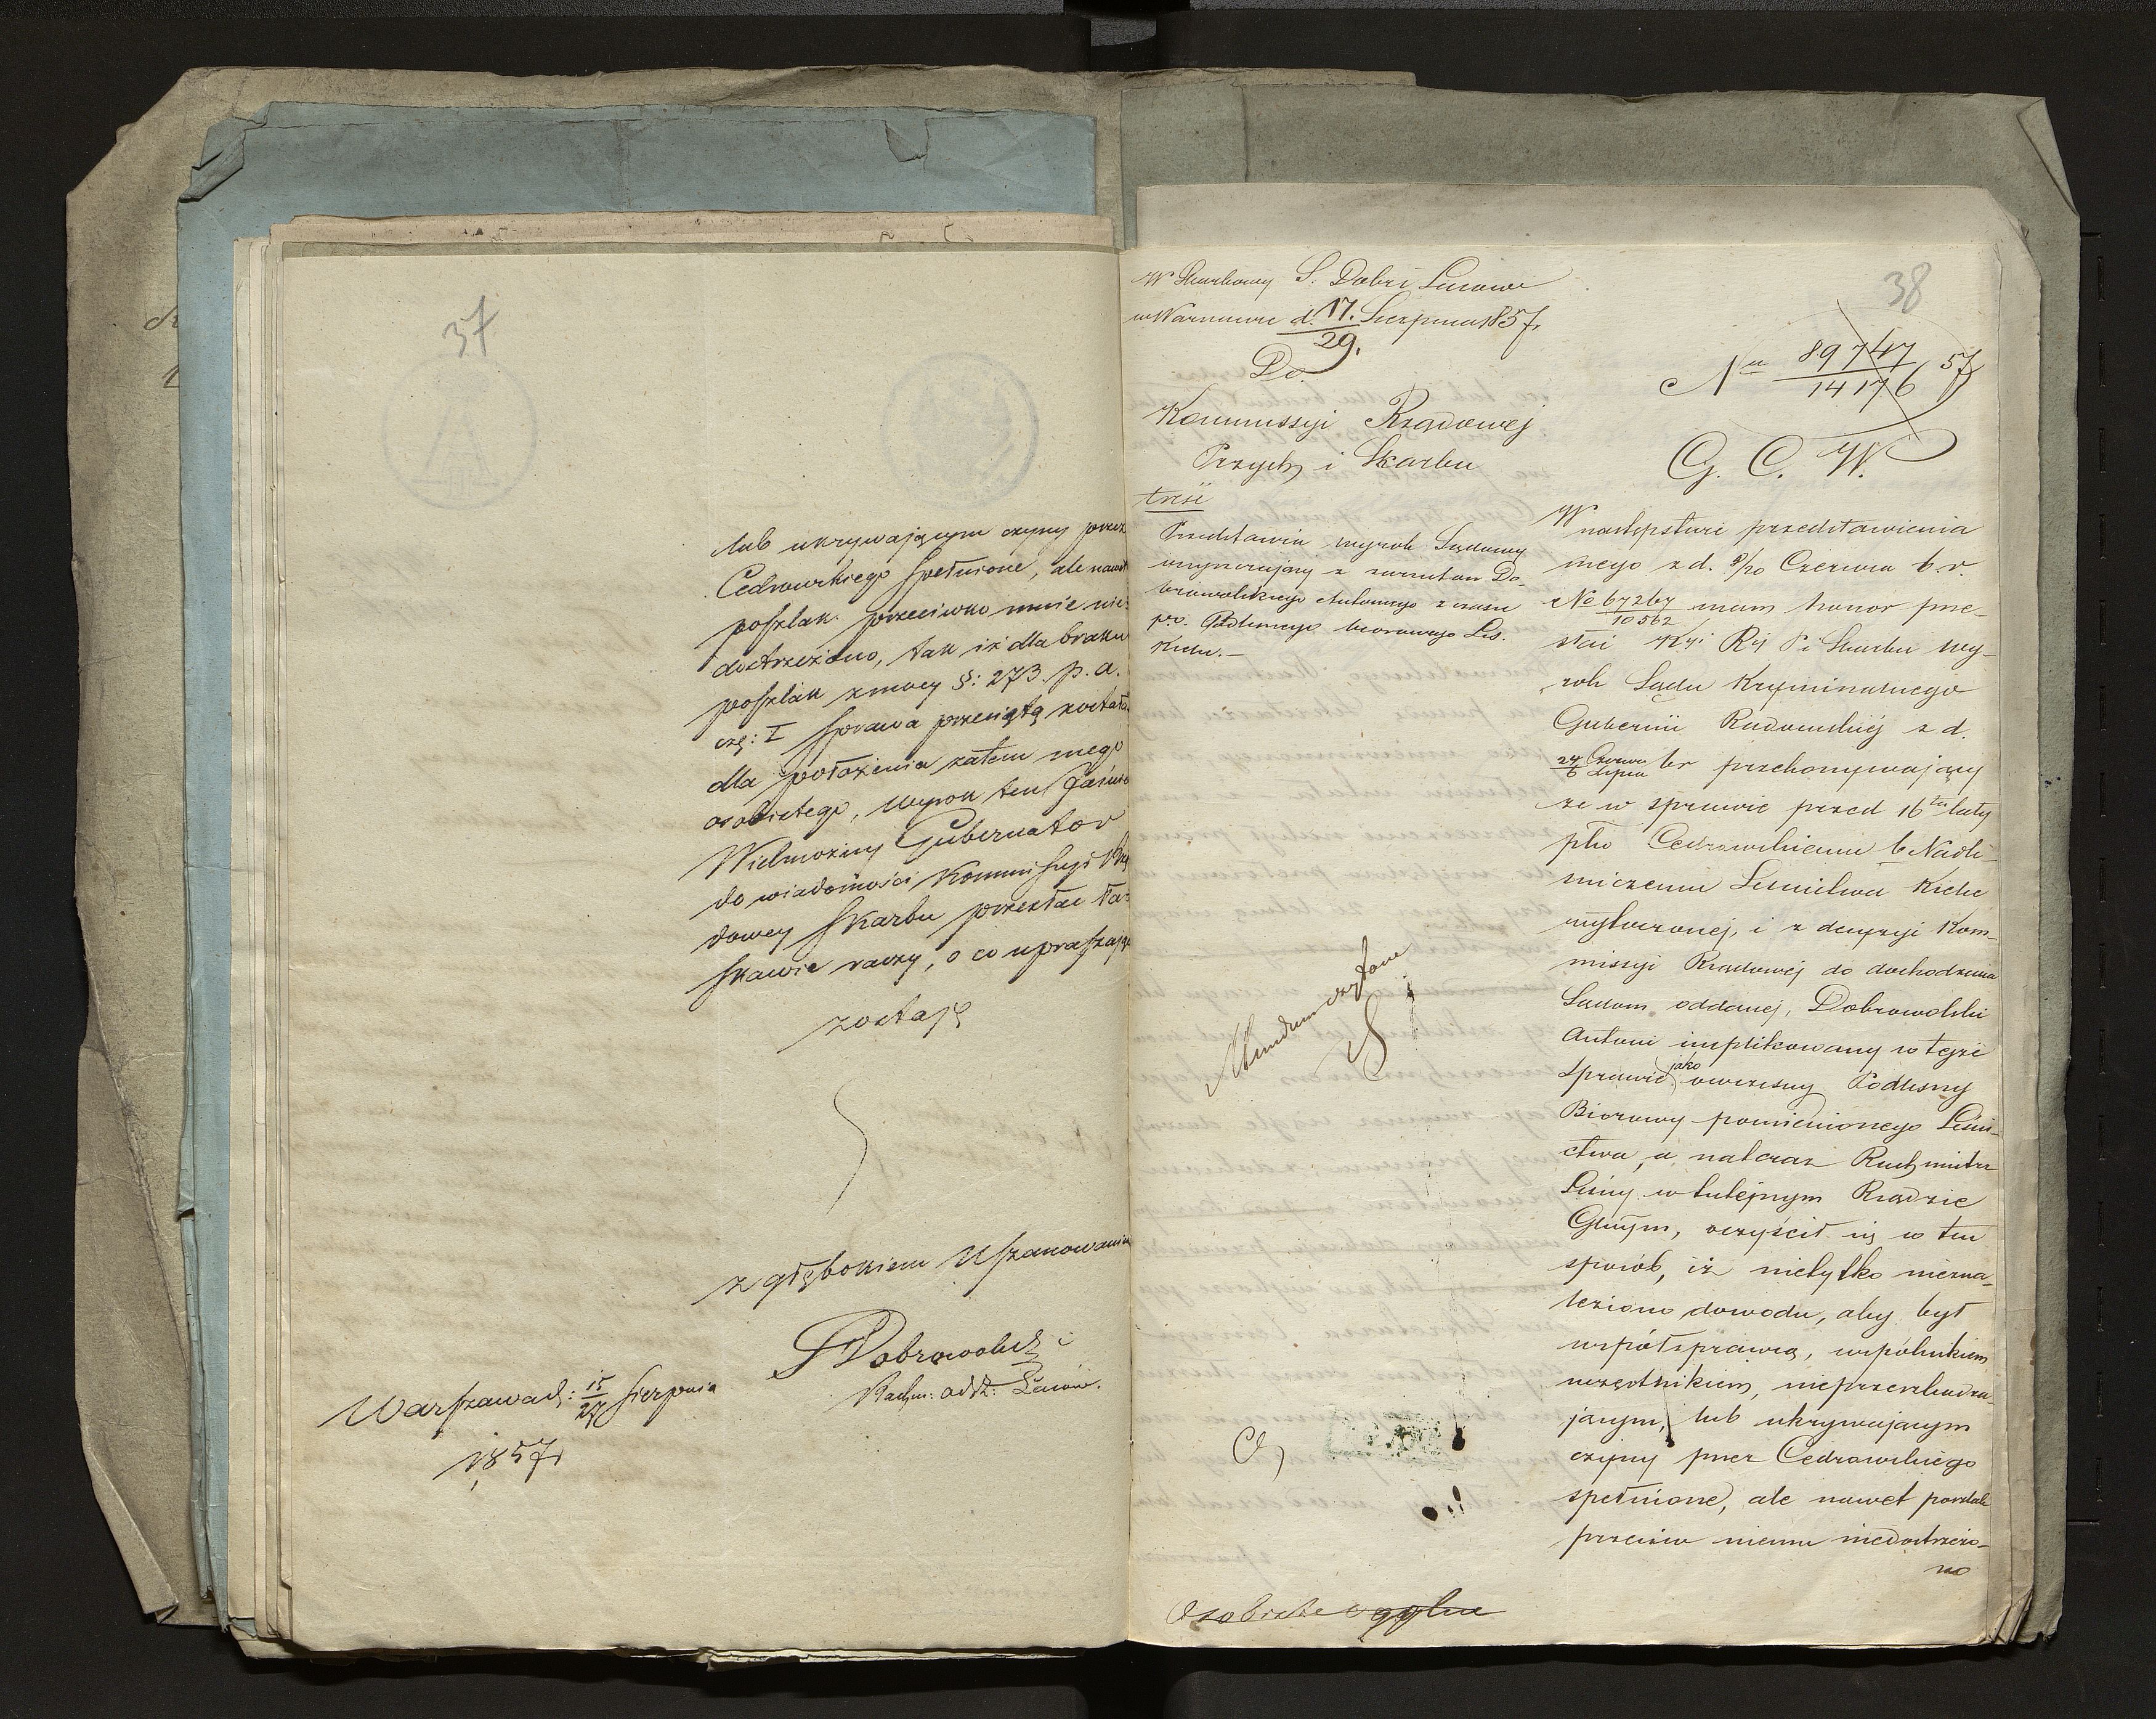 37
lub ukrywającym czyny przez
Cedrowskiego spełnione, ale nawet
poszlak przeciwko mnie nie-
dostrzeżono, tak iż dla braku
poszlak z mocy §: 273. p. a.
czę: I sprawa przeciętą została
dla położenia zatem mego
osobistego, wyrok ten Jaśnie
Wielmożny Gubernator
do wiadomości Kommissyi Rzą
dowey Skarbu przesłać ła-
skawie raczy, o co upraszając
zostaję
z głębokiem uszanowaniem
Dobrowolski
Rachm: Adst: Lasów.
Warszawa d: 15/27 Sierpnia
1857 r
38
W Skarbowy S. Dobr i Lasowe
w Warszawie d. 17./29. Sierpnia 1857 r
Do
Kommissyi Rządowej
Przych i Skarbu
treść
Przedstawia wyrok Sądowy
oczyszczający z zarzutów Do-
browolskiego Antoniego z czasu
Podleśnego biorowego Leś.
Kielce.—
Mundum czytane
Osobiste ogólne
No 89747/14176 57
G. C. W.
W następstwie przedstawienia
mego z d. 8/20 Czerwca b. r.
No 67267/10562 mam honor prze-
słać Kyi Rej P i Skarbu wy-
rok Sądu Kryminalnego
Gubernii Radomskiej z d.
24 Czerwca/6 Lipca br przekonywający
że w sprawie przed 16tu laty
ptko Cedrowskiemu b Nadle-
śniczemu Leśnictwa Kielce
wytoczonej, i z decyzyi Kom-
missyi Rządowej do dochodzenia
Sądom oddanej, Dobrowolski
Antoni implikowany w tejże
sprawie jako ówczesny Podleśny
Biorowy pomienionego Leśni-
ctwa, a natenczas Rachmistrz
Leśny w tutejszym Rządzie
Gnym, oczyścił się w ten
sposób, iż nietylko niezna-
leziono dowodu, aby był
współsprawcą, wspólnikiem
uczęstnikiem, nieprzeszkadza-
jącym, lub ukrywającym
czyny przez Cedrowskiego
spełnione, ale nawet poszlak
przeciw niemu niedostrzeżo-
no